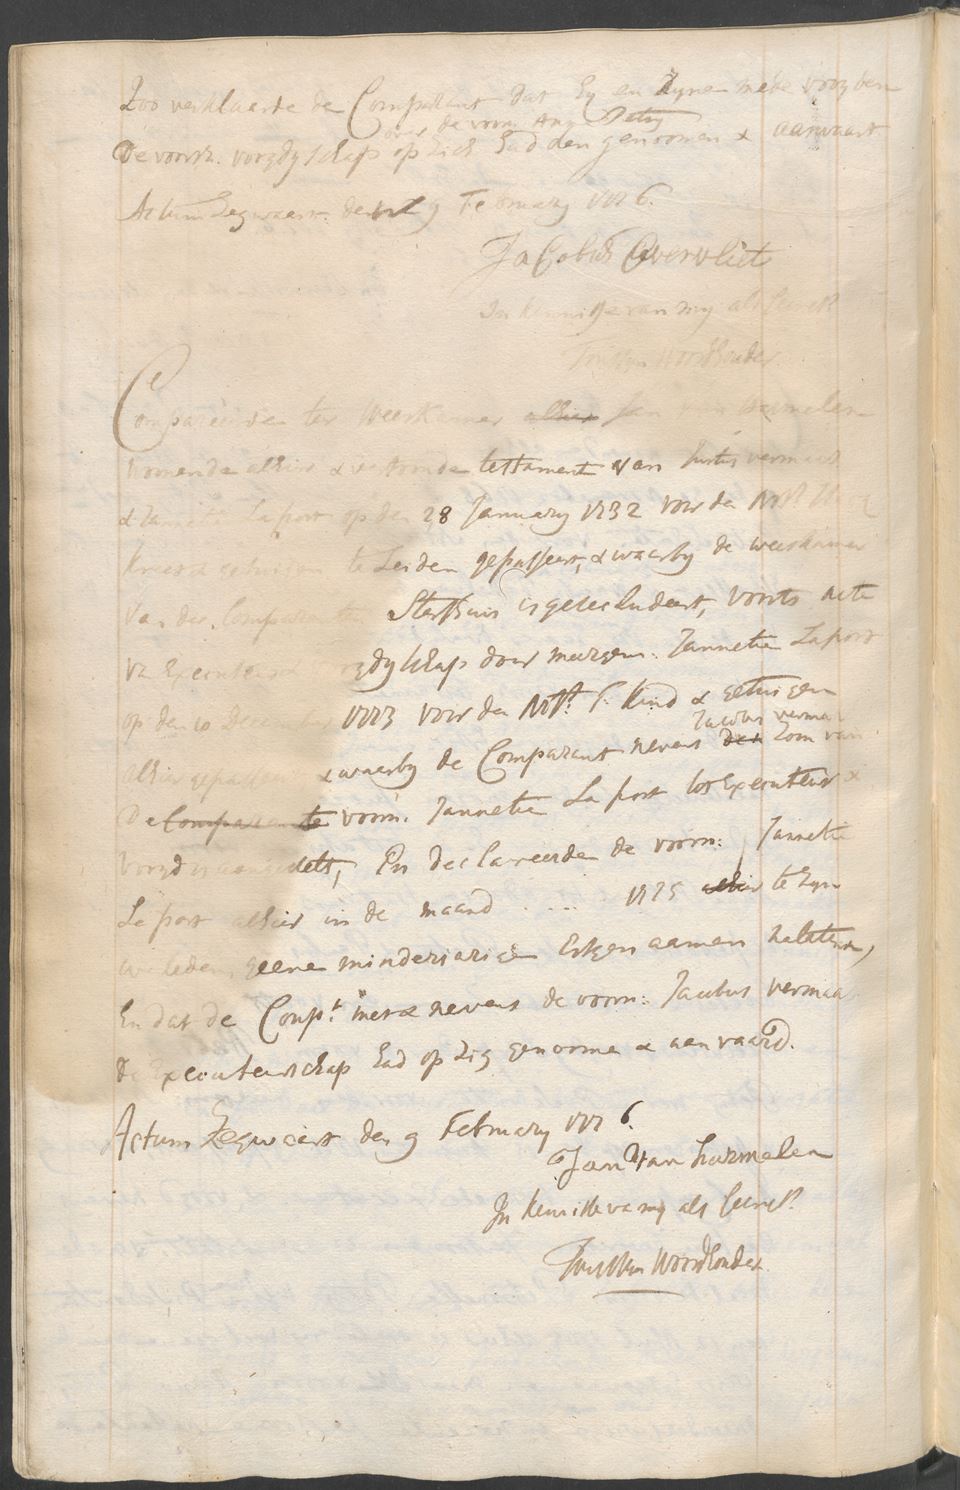 Zoo verklaarde de Comparant dat Hy en Zyne mede voogden
over de voorn. Ary
de voorsz. voogdyschap op zich hadden genoomen & aanvaart
Actum Zegwaert den 9 February 1776.
Jacobus Overvliet
In kennisse van my als Secret.
Compareerde ter Weeskamer Jan van
wonende alhier & vertoonde testament van
& Jannetie Laport op den 28 January 1732 voor den Nots.
te Leiden gepasseert, & waarby de weeskamer
van der Comparante Sterfhuis is geseclundeert, voorts acte
van Executeur voogdyschap door meergem. Jannetie Laport
op den 10 December 1773 voor den Nots. T. Kind & getuigen
Jacobus Vermaa
alhier gepasseert & waarby de Comparant nevens den Zoon van
de Comparante voorn. Jannetie La port tot Executeur &
voogd is aangestelt, En declareerden de voorn: Jannetie
La port alhier in de maand .... 1775 alhier te Zyn
overleden, geene minderjarige Erfgenaamen nalatende,
En dat de Compt. met & nevens de voorn: Jacobus Vermaa
de Executeurschap had op zig genomen & aanvaard.
Actum Zegwaert den 9 February 1776.
Jan van Harmelen
In kennisse van my als Secret.